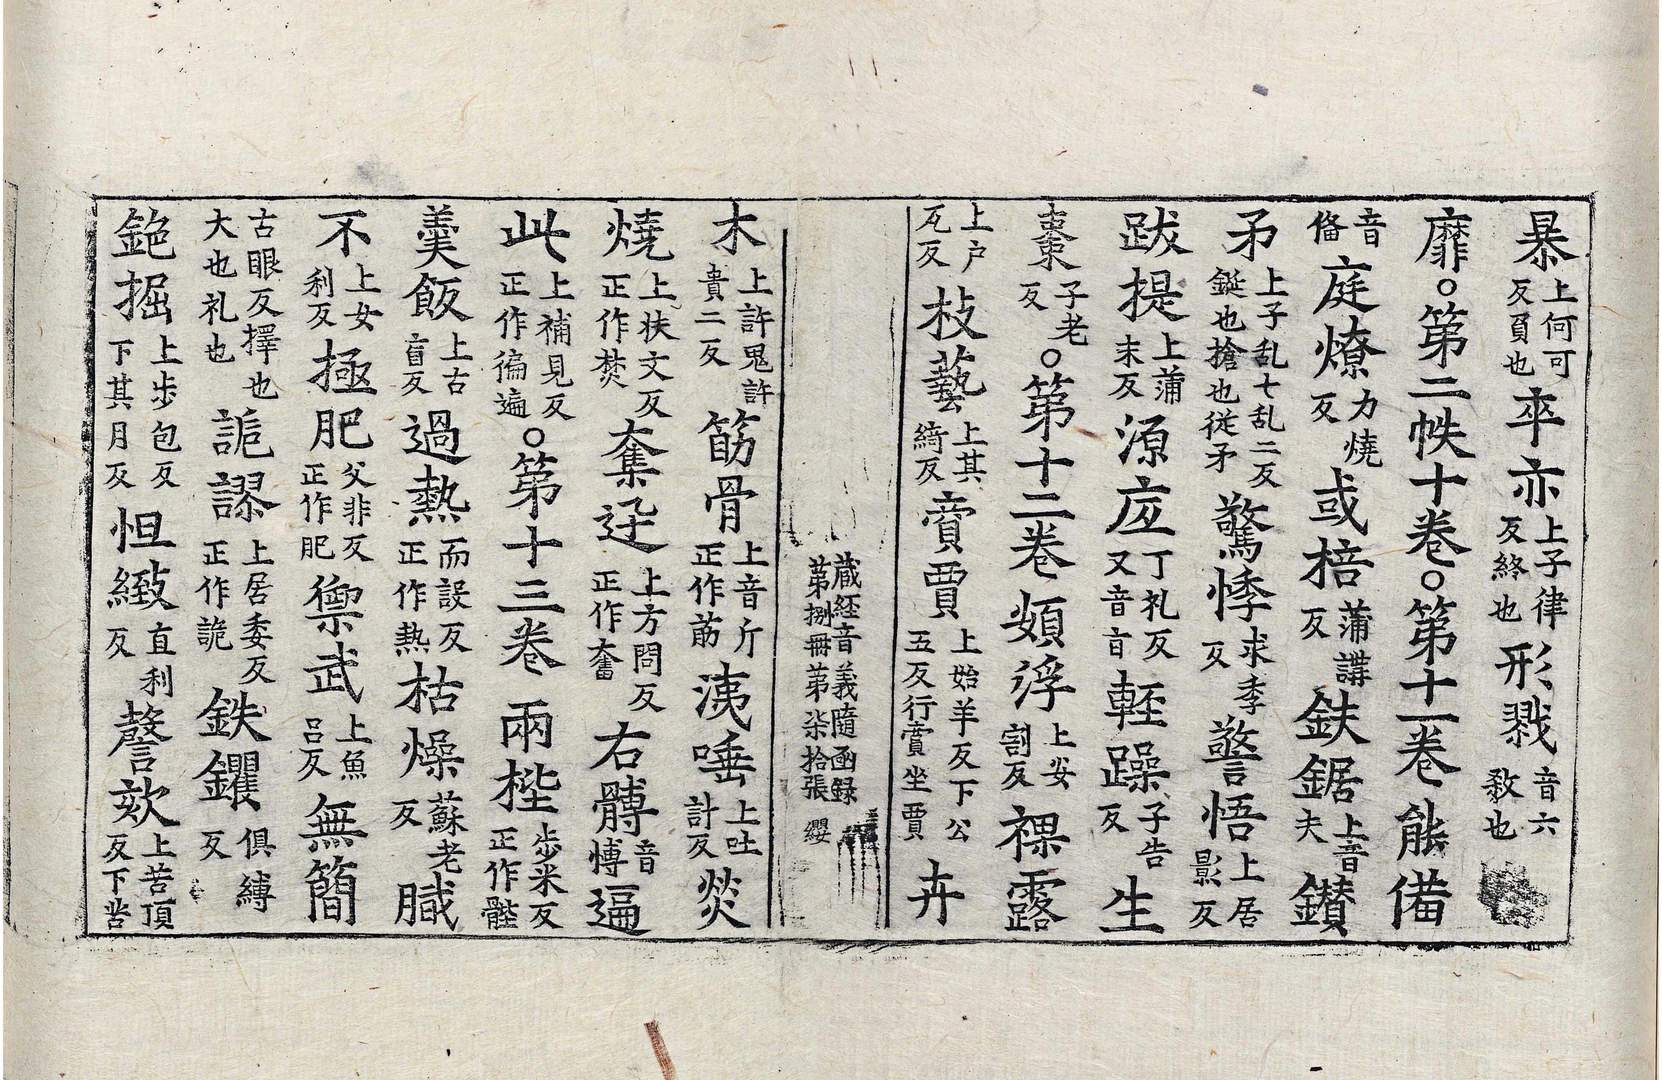 暴上何可反頁也卒亦上子律反終也形戮音六敎也
靡○第二帙十卷○第十一卷能備
音俻庭燎力燒反或棓蒲講反鈇鋸上音夫鑚
矛上子乱七乱二反鋋也搶也從矛驚悸求季反警悟上居影反
跋提上蒲末反源庢丁礼反又音盲輊躁子告反生
棗子老反○第十二卷頞浮上安割反裸露
上户瓦反柭藝上其綺反賣賈上始羊反下公五反行賣坐賈卉
藏経音義隨函録第捌冊第柒拾張纓
木上許鬼許貴二反筋骨上音斤正作筋洟唾上吐計反熒
燒上扶文反正作焚奮迅上方問反正作奮右髆音博逼
此上補見反正作徧遍○第十三卷兩梐歩米反正作髀
羹飯上古盲反過熱而設反正作熱枯燥蘇老反膱
不上女利反極肥父非反正作肥禦武上魚吕反無簡
古眼反擇也大也礼也詭謬上居委反正作詭鈇钁俱縛反
鉋掘上歩包反下其月反怛緻直利反謦欬上苦頂反下苦